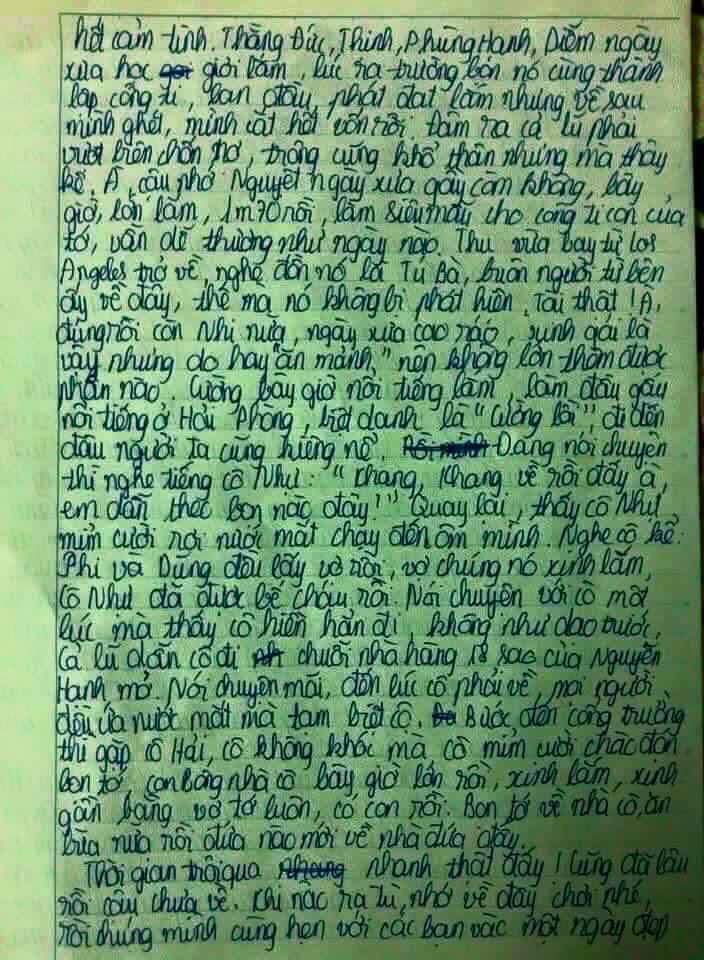 hết cảm tình. Thằng Đức, Thinh, Phùng Hanh, Diễm ngày
xưa học giỏi lắm, lúc ra trường bọn nó cùng thành
lập công ti, ban đầu phát đạt lắm nhưng về sau
mình ghét, mình cắt hết vốn rồi thâm ra cả lũ phải
vượt biên chốn nợ, trông cũng khổ thân nhưng mà thây
kệ. À, cậu nhớ Nguyệt ngày xưa gầy còm không, bây
giờ, lớn lắm, 1m70 rồi, làm siêu mẫu cho công ti con của
tớ, vẫn dễ thương như ngày nào. Thu vừa bay từ Los
Angeles trở về, nghe đồn nó là Tú Bà, buôn người từ bên
ấy về đây, thế mà nó không bị phát hiện. Tài thật! À,
đúng rồi còn Nhi nữa, ngày xưa cao ráo, xinh gái là
vậy nhưng do hay "ăn mảnh" nên không lớn thêm được
phân nào. Cường bây giờ nổi tiếng lắm, làm đầu gấu
nổi tiếng ở Hải Phòng, biệt danh là "Cường lồi", đi đến
đâu người ta cũng kiêng nể. Đang nói chuyện
thì nghe tiếng cô Như: "Khang, Khang về rồi đấy à,
em dẫn theo bọn nào đây!" Quay lại, thấy cô Như
mỉm cười rơi nước mắt chạy đến ôm mình. Nghe cô kể:
Phi và Dũng đều lấy vợ rồi, vợ chúng nó xinh lắm,
Cô Như đã được bế cháu rồi. Nói chuyện với cô một
lúc mà thấy cô hiền hẳn đi, không như dạo trước,
Cả lũ dẫn cô đi chuỗi nhà hàng 18 sao của Nguyễn
Hanh mở. Nói chuyện mãi, đến lúc cô phải về, mọi người
đều ứa nước mắt mà tạm biệt cô. Bước đến cổng trường
thì gặp cô Hải, cô không khóc mà cô mỉm cười chào đón
bọn tớ, con Bống nhà cô bây giờ lớn rồi, xinh lắm, xinh
gần bằng vợ tớ luôn, có con rồi. Bọn tớ về nhà cô, ăn
bữa nữa rồi đứa nào mới về nhà đứa đấy.
Thời gian trôi qua nhanh thật đấy! Cũng đã lâu
rồi cậu chưa về. Khi nào ra tù, nhớ về đây chơi nhé,
rồi chúng mình cùng hẹn với các bạn vào một ngày đẹp